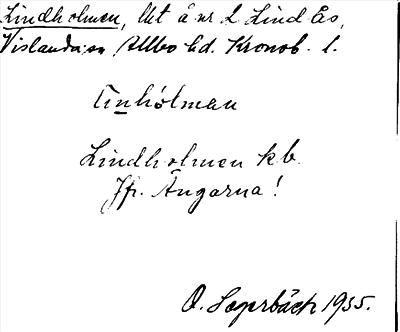 Lindholmen, Ut å nr 2 Lindås,
Vislanda sn Allbo hd. Kronob. l.
Lindholmen kb.
Jfr. Ängarna!
O. Sagerbäck 1935.